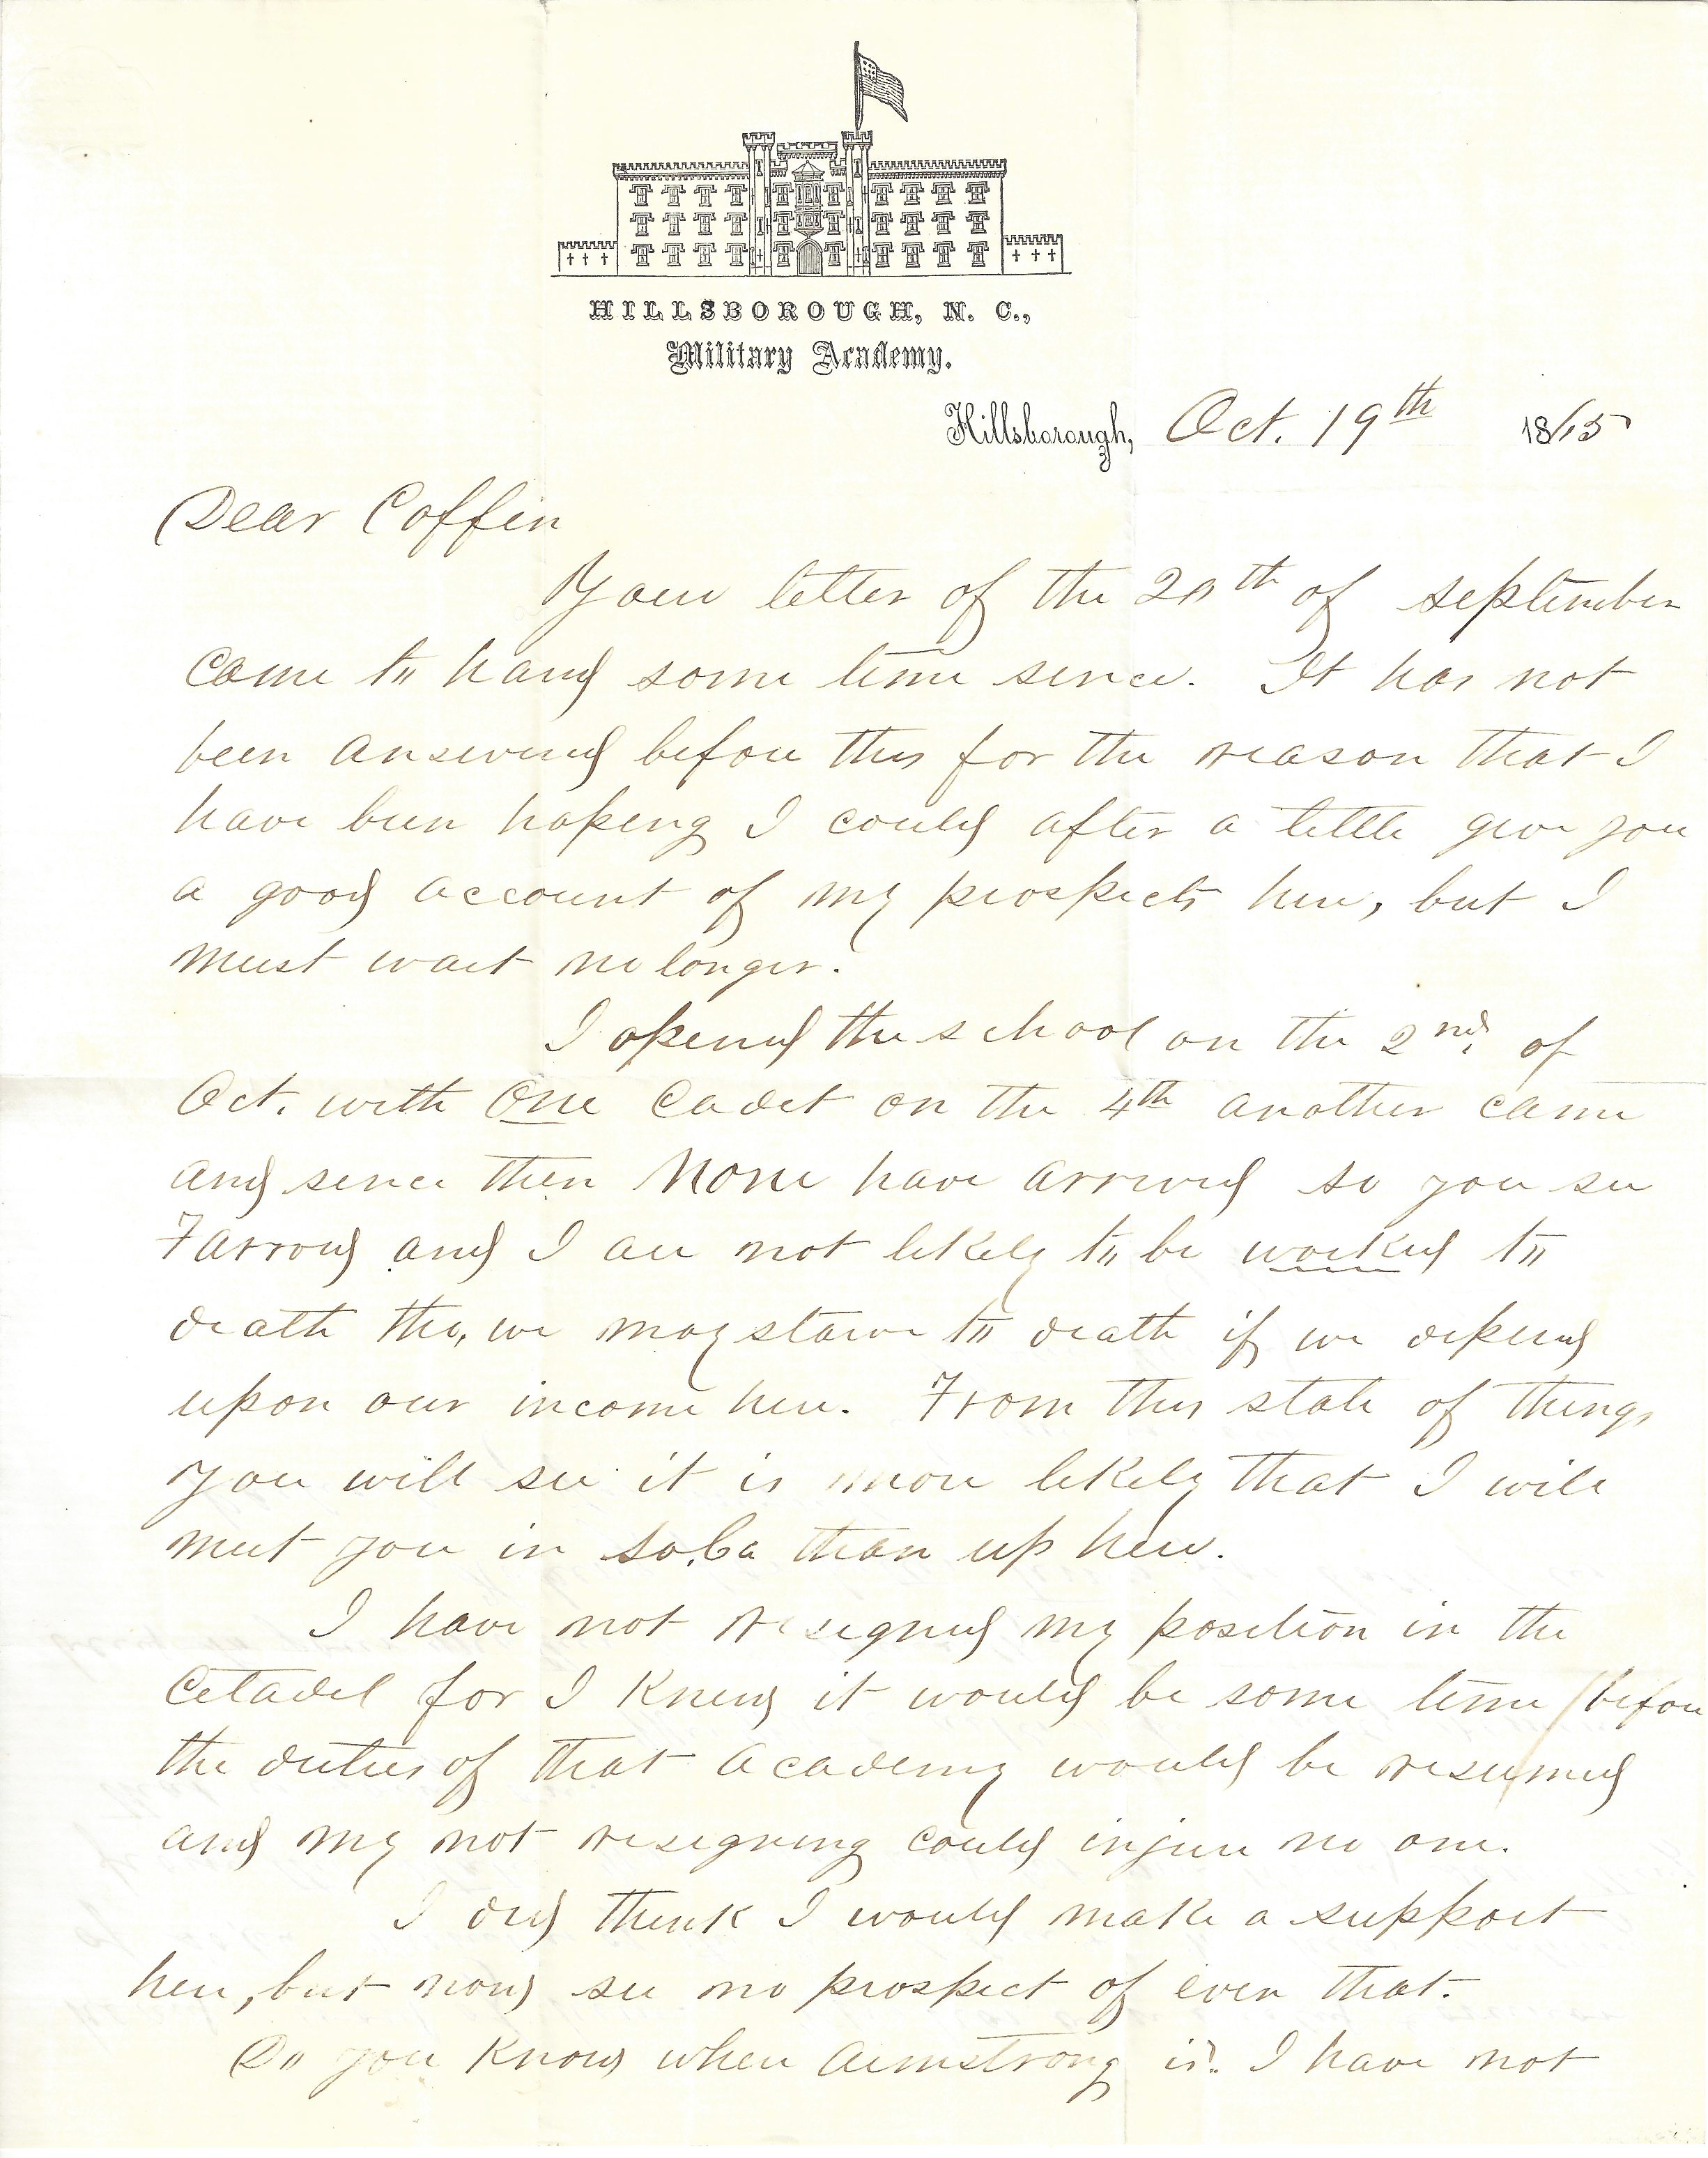 HILLSBOROUGH, N. C.,
Military Academy.
Hillsborough, Oct. 19th 1865
Dear Coffin
Your letter of the 20th of september
came to hand some time since. It has not
been answered before this for the reason that I
have been hoping I could after a little give you
a good account of my prospects here, but I
must wait no longer.
I opened the school on the 2nd. of
Oct. with One Cadet on the 4th another came
and since then None have arrived so you see
Farrow and I are not likely to be worked to
death tho, we may starve to death if we depend
upon our income here. From this state of things
you will see it is more likely that I will
meet you in So. Ca than up here.
I have not resigned my position in the
Citadel for I knew it would be some time before
the duties of that Academy would be resumed
and my not resigning could injure no one.
I did think I would make a support
here, but now see no prospect of even that.
Do you know where Armstrong is. I have not